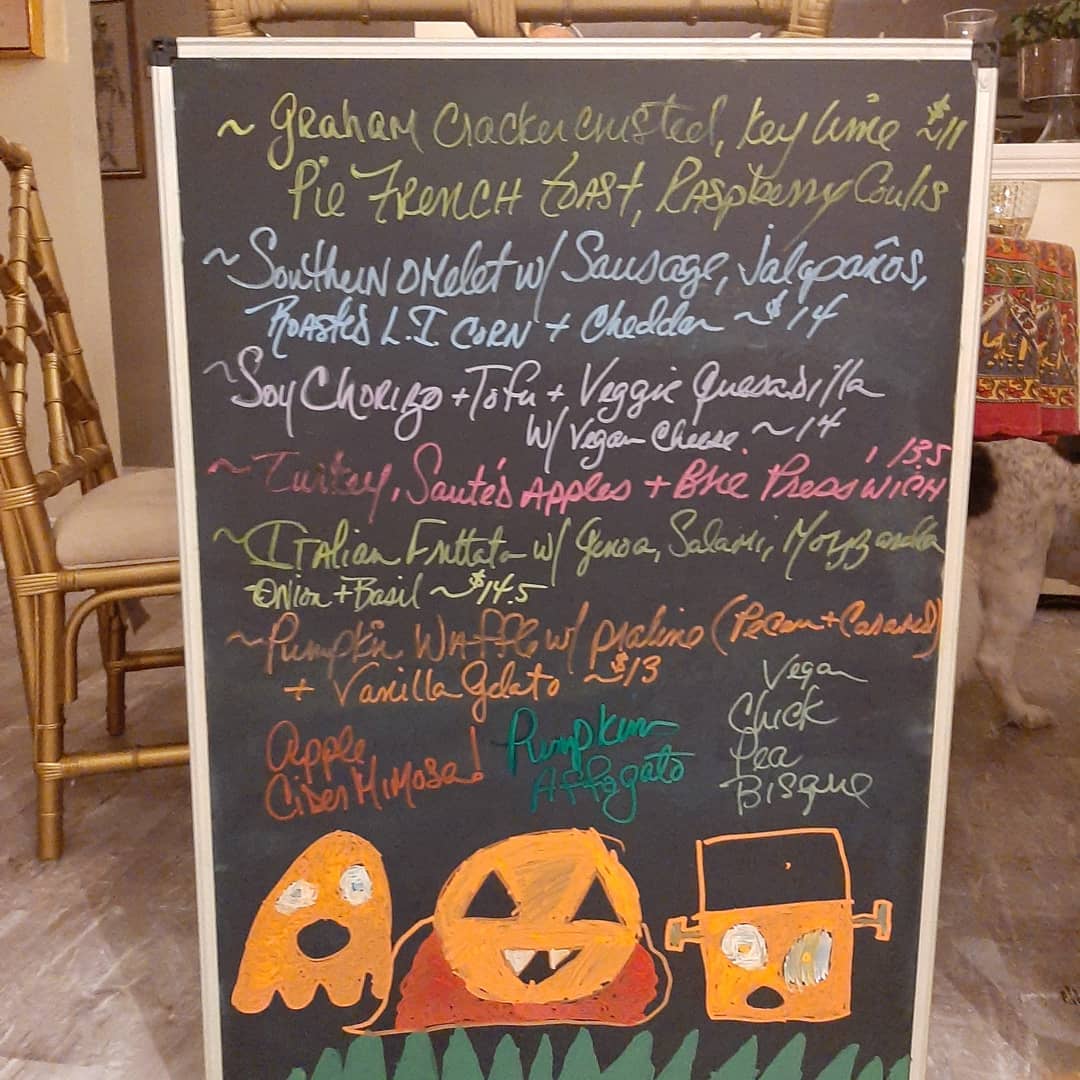 ~ Graham Cracker crusted, Key Lime ~$11
Pie French Toast, Raspberry Coulis
~ Southern Omelet w/ Sausage, Jalapaños,
Roasted L.I. Corn + Cheddar ~$14
~ Soy Chorizo + Tofu + Veggie Quesadilla
w/ Vegan Cheese ~ 14
~ Turkey, Sauté'd Apples + Brie Presswich , 13.5
~ Italian Frittata w/ Genoa, Salami, Mozzarella
Onion + Basil ~$14.5
~ Pumpkin Waffle w/ praline (Pecan + Caramel)
+ Vanilla Gelato ~$13
Apple
Cider Mimosa!
Pumpkin
Affogato
Vegan
Chick
Pea
Bisque